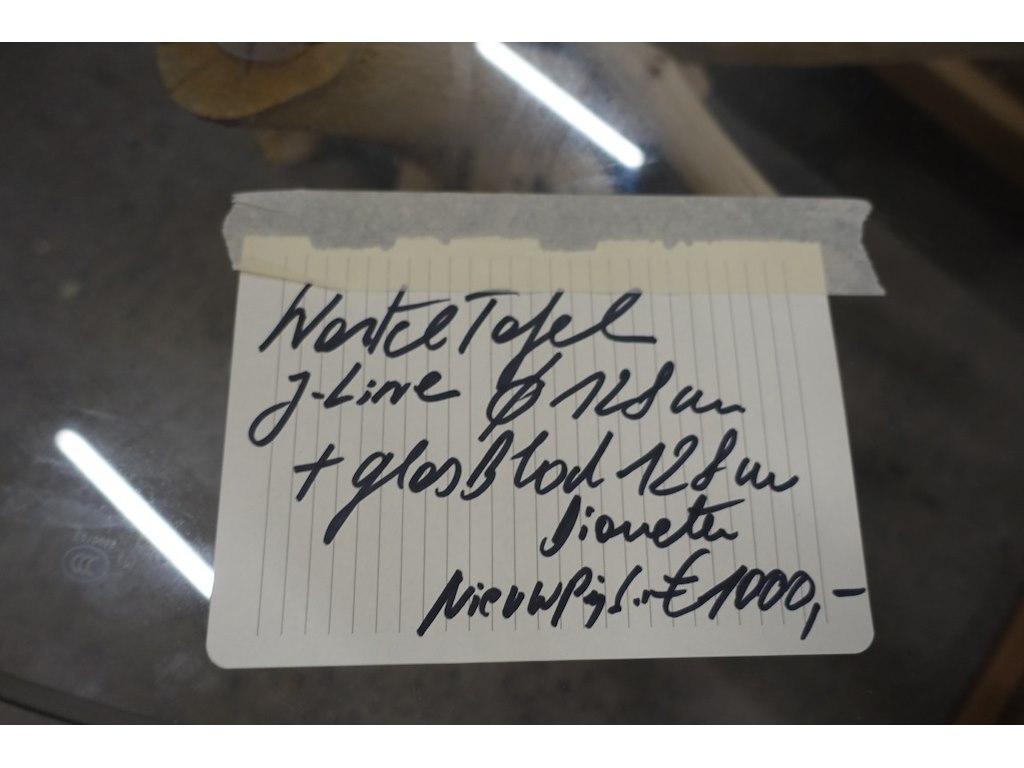 WortelTafel
J-Line Ø 128 cm
+ glasBlad 128 cm
Diameter
NieuwPrijs € 1000,-